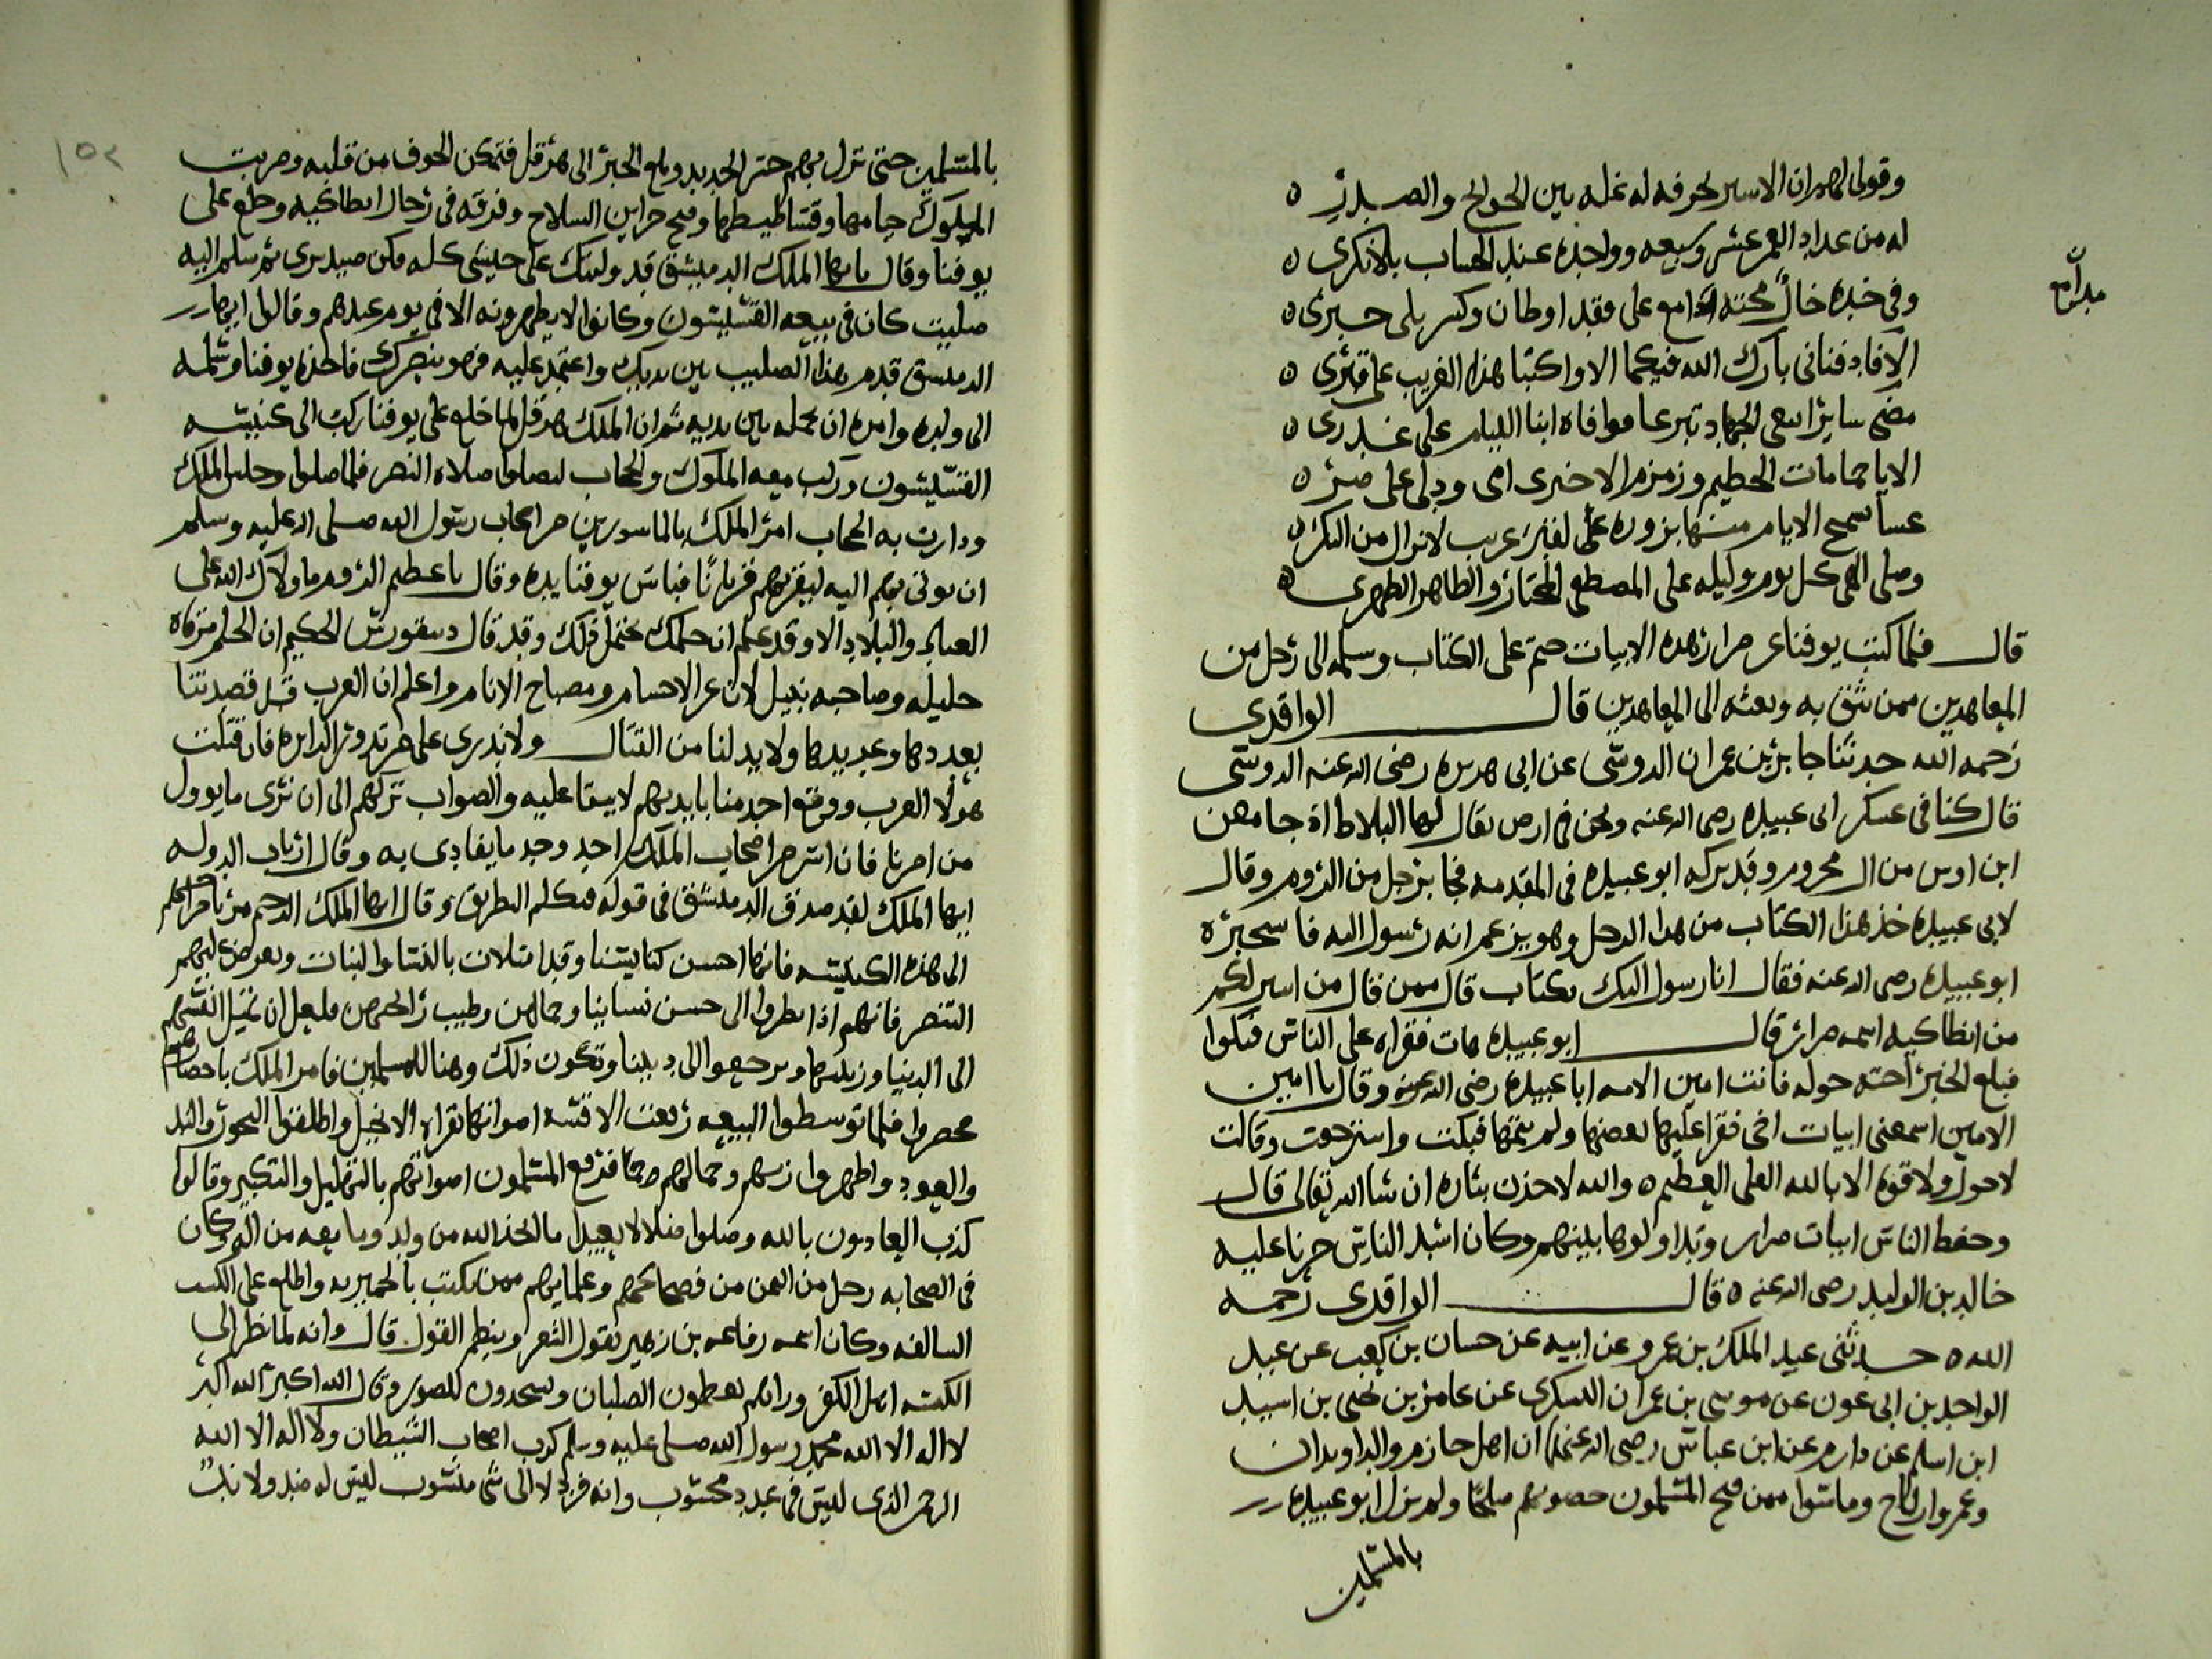 وقولى لهم ان الاسير لحرفه له غله بين الحوانح والصدر ٥
له من عداد العمر عشر وسبعه وواحده عند الحساب بلا نكرى ٥
وفى خده خال محته مدامع على فقد اوطان وكسر بلى جبرى ٥
مدامع
الا فادفنانى بارك الله فيكما الا واكتبا هذا الغريب على قبرى ٥
مضى سايرا يبغى الجهاد تبرعا فوافاه ابنا الليام على غدرى ٥
الا يا حمامات الحطيم وزمزم الا خبرى امى ودلى على
عسا تسمح الايام منها بزوره على لقبر غريب لا نزال من النكر ٥
وصلى الهى كل يوم وليله على المصطفى المختار والطاهر الطهرى ٥
قال فلما كتب يوفنا عن ضرار هذه الابيات ختم على الكتاب وسلمه الى رجل من
المعاهدين ممن يثق به وبعثه الى المعاهدين قال الواقدى
رحمه الله حدثنا جابر بن عمران الدوسى عن ابى هريره رضى الله عنه الدوسى
قال كنا فى عسكر ابى عبيده رضى الله عنه ونحن فى ارض يقال لها البلاط اذ جا معن
ابن اوس من ال محروم وقد تركه ابو عبيده فى المقدمه فجا برجل من الروم وقال
لابى عبيده خذ هذا الكتاب من هذا الرجل وهو يزعم انه رسول اليه فاستخبره
ابو عبيده رضى الله عنه فقال انا رسول اليك بكتاب قال ممن قال من اسير لكم
من انطاكيه اسمه ضرار قال ابو عبيده هات فقراه على الناس فبكوا
فبلغ الخبر اخته خوله فاتت امين الامه ابا عبيده رضى الله عنه وقال يا امين
الامين اسمعنى ابيات اخى فقرا عليها بعضها ولم يتمها فبكت واسترجعت وقالت
لا حول ولا قوه الا بالله العلى العظيم ٥ والله لاخذن بثاره ان شا الله تعالى قال
وحفظ الناس ابيات ضرار وتداولوها بينهم وكان اشد الناس حزنا عليه
خالد بن الوليد رضى الله عنه ٥ قال الواقدى رحمه
الله ٥ حدثنى عبد الملك بن عمرو عن ابيه عن حسان بن كعب عن عبد
الواحد بن ابى عون عن موسى بن عمران اليشكرى عن عامر بن يحيى بن اسيد
ابن اسلم عن دارم عن ابن عباس رضى الله عنهما ان اهل حازم والراوندان
وعم وارتاح وما ممن فتح المسلمون حصونهم صلحا ولم يزل ابو عبيده
بالمسلمين
١٥٢
بالمسلمين حتى نزل بهم جسر الحديد وبلغ الخبر الى هرقل فتمكن الخوف من قلبه وضربت
الملوك خيامها وفساطيطها وفتح خزاين السلاح وفرقه فى رجال انطاكيه وخلع على
يوفنا وقال يا ايها الملك الدمشق قد وليتك على جيشى كله فكن مبدبرى ثم سلم اليه
صليب كان فى بيعه القسيسون وكانوا لا يظهرونه الا فى يوم عيدهم وقال ايها
الدمستق قدم هذا الصليب بين يديك واعتمد عليه فهو ينصرك فاخذه يوفنا وسلمه
الى ولده وامره ان يحمله بين يديه ثم ان الملك هرقل لما خلع على يوفنا ركب الى كنيسه
القسيسون وركب معه الملوك والحجاب ليصلوا صلاه النصر فلما صلوا وجلس الملك
ودارت به الحجاب امر الملك بالماسورين من اصحاب رسول الله صلى الله عليه وسلم
ان يوتى بهم اليه ليقربهم قربانا فباس يوفنا يده وقال يا عظيم الروم ما ولاك الله على
العباد والبلاد الا وقد علم ان حملك يحتمل ذلك وقد قال ديسقورس الحكيم ان الحلم مزناه
جليله وصاحبه نبيل لان عز الاجسام ومصباح الانام واعلم ان العرب قد قصدتنا
بعددها وعديدها ولا بد لنا من القتال ولا ندرى على من تدور الدايره فان قتلت
هولا العرب ووقع احد منا بايديهم لا يبقا عليه والصواب تركهم الى ان نرى ما يوول
من امرنا فان اسر من اصحاب الملك احد وجد ما يفادى به وقال ارباب الدوله
ايها الملك لقد صدق الدمشق فى قوله فتكلم البطريق وقال ايها الملك الرحيم مر
الى هذه الكنيسه فانها احسن كنايسنا وقد امتلات بالنسا والبنات ويعرض عليهم
التنصر فانهم اذا نظروا الى حسن نساينا وجمالهن وطيب رايحتهن فلعل ان تميل انفسهم
الى الدنيا وزينتها ويرجعوا الى ديننا وتكون ذلك وهنا للمسلمين فامر الملك باحضارهم
فحضروا فلما توسطوا البيعه رفعت الاقسه اصواتها بقراه الانجيل واطلقوا البخور والند
والعود واظهروا زينتهم وجمالهم فرفع المسلمون اصواتهم بالتهليل والتكبير وقالوا
كذب العادون بالله وضلوا ضلالا بعيدا ما اتخذ الله من ولد وما معه من اله وكان
فى الصحابه رجل من اليمن من فصحايهم وعلمايهم ممن يكتب بالحميريه واطلع على الكتب
السالفه وكان اسمه رفاعه بن زهير يقول الشعر وينظم القول قال وانه لما نظر الى
الكنيسه اهل الكفر وراهم يعظمون الصلبان ويسجدون للصور وقال الله اكبر الله اكبر
لا اله الا الله محمد رسول الله صلى عليه وسلم كذب اصحاب الشيطان ولا اله الا الله
الرحمن الذى ليس فى عدد محسوب وانه فرد لا الى شى منسوب ليس له ضد ولا ند